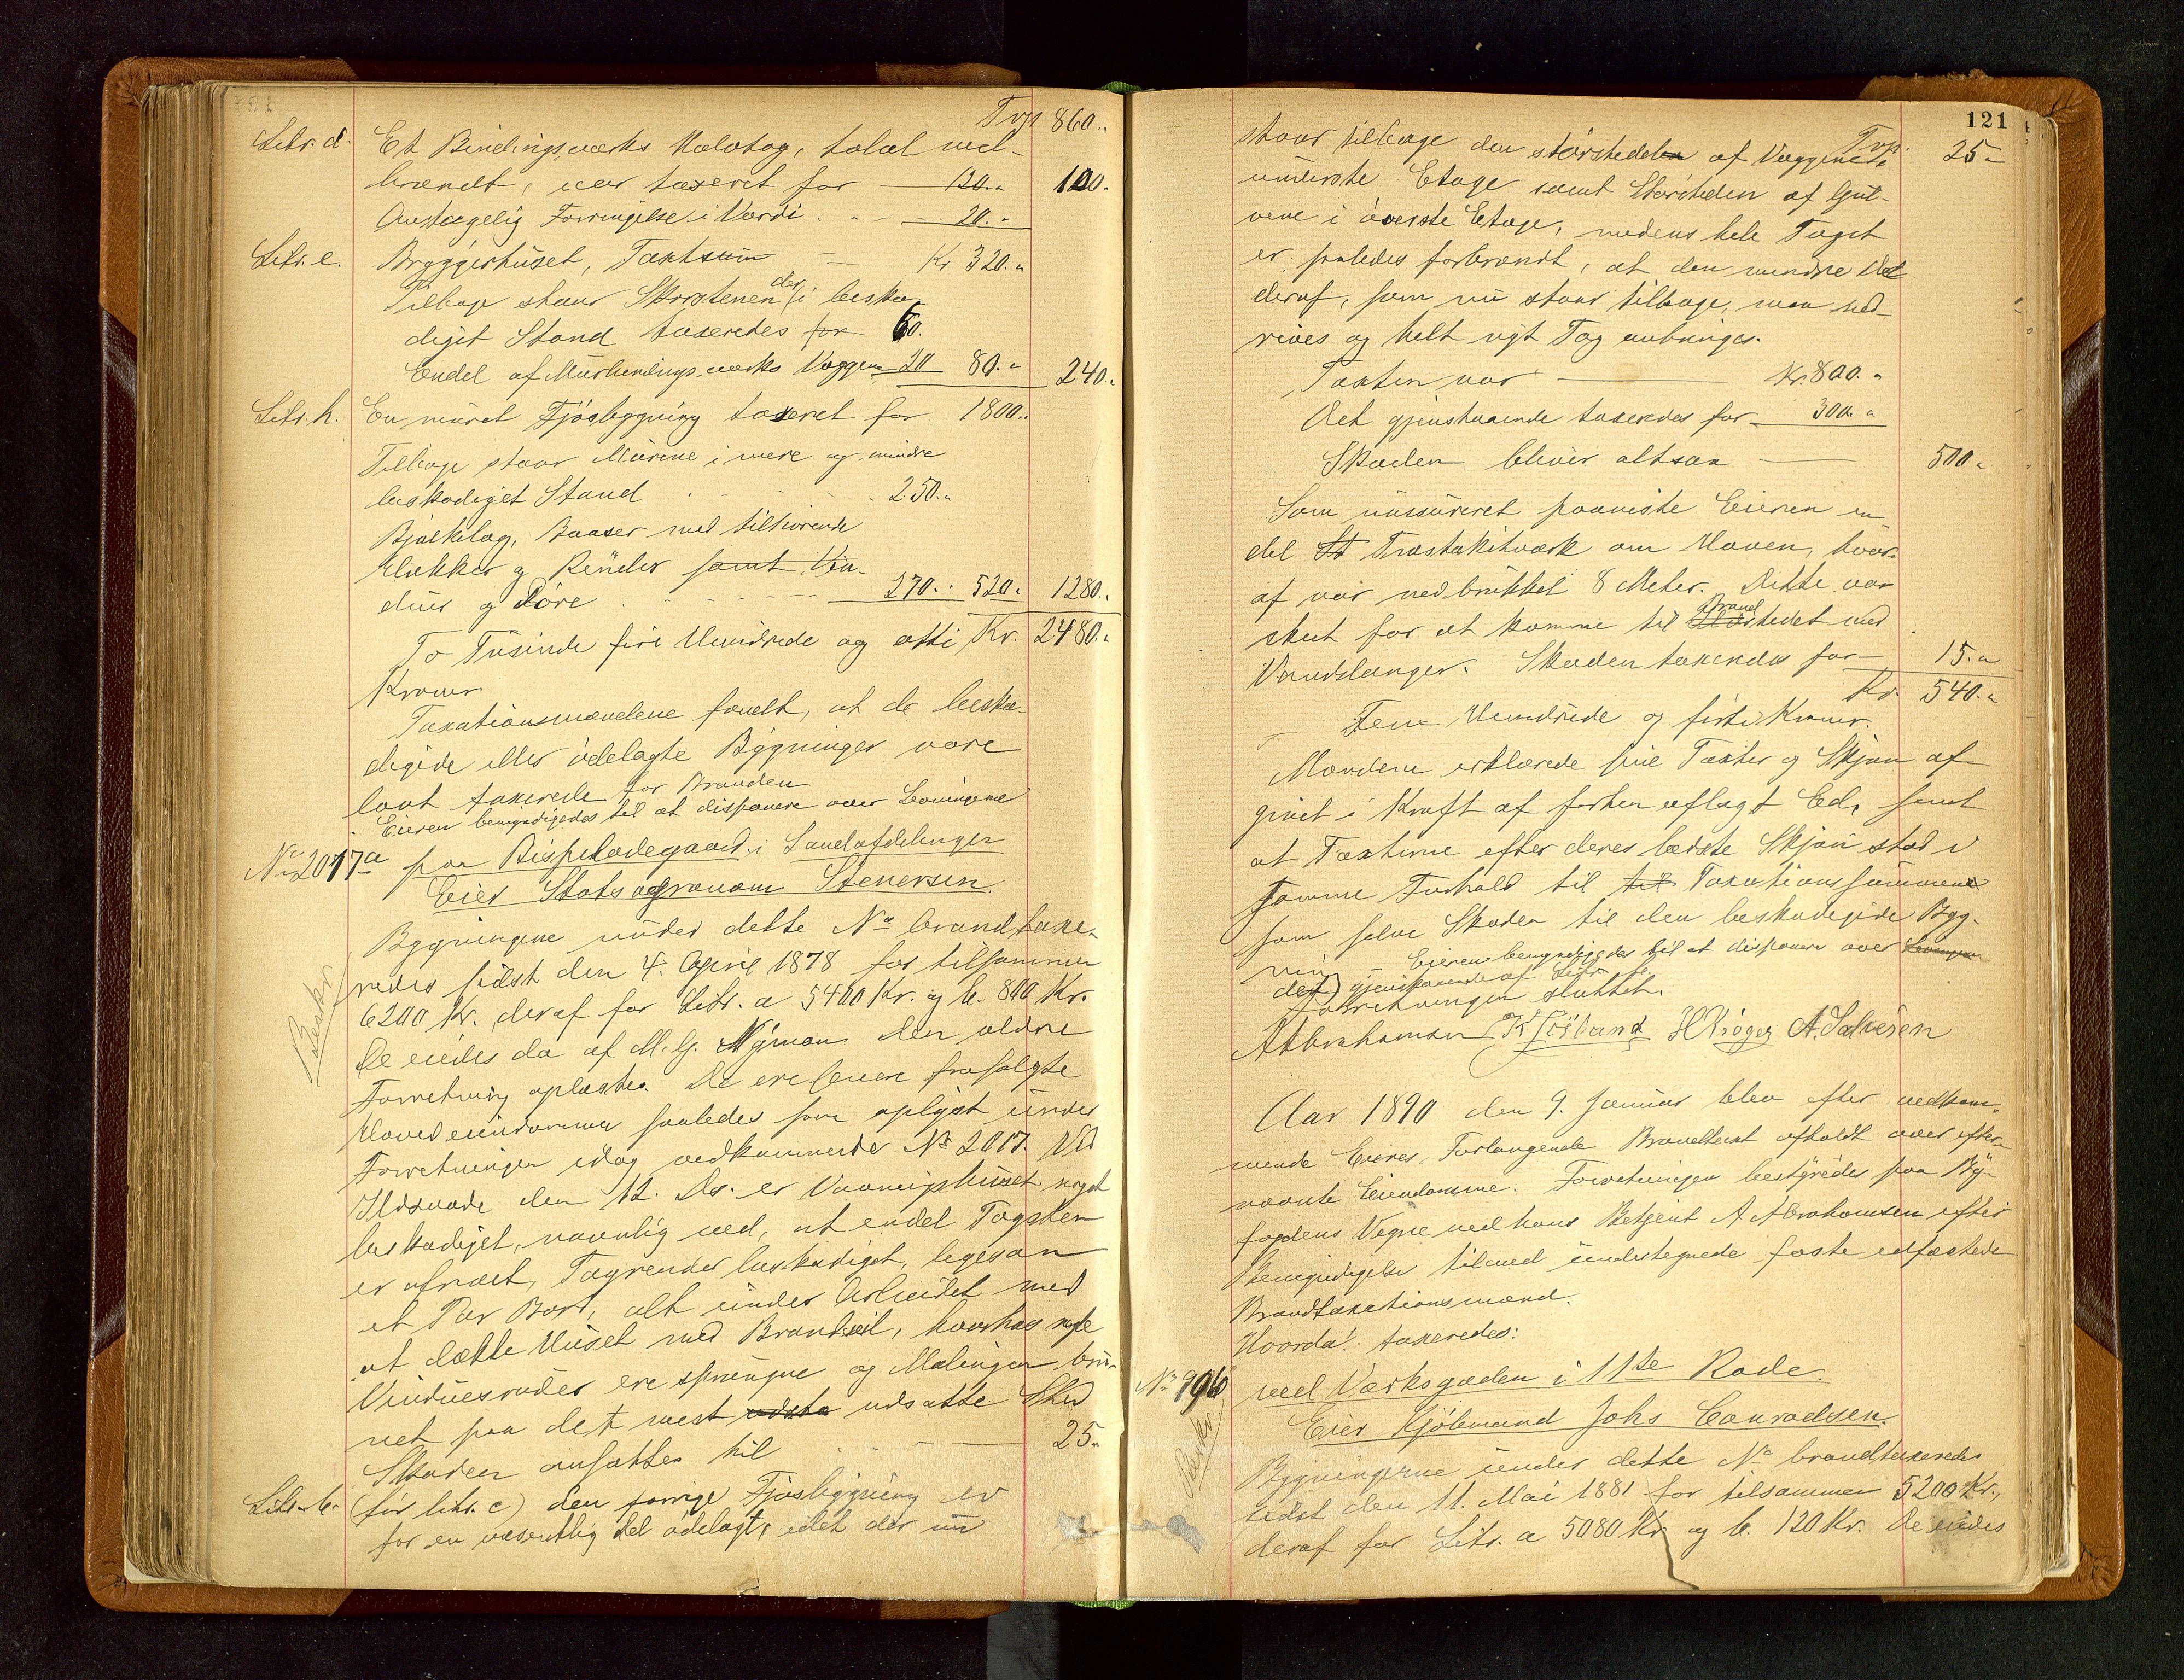 Trp 860.
Litr. d. Et Bindingsværks Halvtag, total ned-
brændt, var taxeret for 120. 100.
Antagelig Forringelse i Værdi 20.
Litr. e. Bryggerhuset, Taxtsum Kr 320.
Tilbage staar Skorstenen der i beska-
diget Stand taxeredes for 60.
Endel af Murbindingsværks Væggene 20 80. 240.
Litr. h. En muret Fjøsbygning taxeret for 1800.
Tilbage staar Murene i mere og mindre
beskadiget Stand 250.
Bjælkelag, Baaser med tilhørende
Krukker og Render samt Vin-
duer og Døre 270. 520. 1280.
To Tusinde fire Hundrede og otti Kr. 2480.
Kroner
Taxationsmændene fandt, at de beska-
digede eller ødelagte Bygninger vare
lavt taxerede før Branden
Eieren bemyndigedes til at disponere over Levningerne
No 2017a paa Bispeladegaard i Landafdelingen
Eier Statsagronom Stenersen.
Bygningerne under dette No brandtaxe-
redes sidst den 4. April 1878 for tilsammen
6200 Kr. deraf for Litr. a 5400 Kr. og b. 800 Kr.
Beskr.
De eiedes da af M. G. Nyman. Den ældre
Forretning oplæstes. De ere senere frasolgte
Hovedeiendommen saaledes som oplyst under
Forretningen idag vedkommende No 2017. Ved
Ildsvaade den 12. Ds. er Vaaningshuset noget
beskadiget, navnlig ved, at endel Tagsten
er afrævet, Tagrender beskadiget, ligesaa
et Par Bord, alt under Arbeidet med
at dække Huset med Brandseil, hvorhos nogle
Vinduesruder ere sprungne og Malingen bræn-
net paa det mest udsatte Sted
Skaden ansattes til 25.
Litr. b. (før litr. c) den forrige Fjøsbygning er
for en væsentlig Del ødelagt, idet der nu
121
Trp. 25.
staar tilbage den størstedelen af Væggene i
underste Etage samt Størsteden af Gul-
vene i øverste Etage, medens hele Taget
er saaledes forbrændt, at den mindre Del
deraf, som nu staar tilbage, maa ned-
rives og helt nyt Tag anbringes.
Taxten var Kr. 800.
Det gjenstaaende taxeredes for 300.
Skaden bliver altsaa 500.
Som uassureret paaviste Eieren en
del St Træstakitværk om Haven, hvor-
af var nedbrukket 8 Meter. Dette var
skeet for at komme til Brandstedet med
Vandslanger. Skaden taxeredes for 15.
Kr. 540.
Fem Hundrede og firti Kroner.
Mændene erklærede sine Taxter og Skjøn af-
givet i Kraft af forhen aflagt Ed, samt
at Taxterne efter deres bedste Skjøn stod i
samme Forhold til til Taxationssummene
som selve Skaden til den beskadigede Byg-
ning - Eieren bemyndigedes til at disponere over Levningerne
det gjenstaaende af Litr. b.
Forretningen sluttet.
A Abrahamsen K Joss­land H Krøger A. Salvesen
Aar 1890 den 9. Januar blev efter vedkom-
mende Eieres Forlangende Brandtaxt afholdt over efter-
nævnte Eiendomme. Forretningen bestyredes paa By-
fogdens Vegne ved hans Betjent A Abrahamsen efter
Bemyndigelse tilmed undertegnede faste edfæstede
Brandtaxationsmænd.
Hvorda! taxeredes:
No 996 ved Værksgaden i 11te Rode.
Eier Kjøbmand Johs Conradsen.
Bygningerne under dette No brandtaxeredes
sidst den 11. Mai 1881 for tilsammen 5200 Kr.,
deraf for Litr. a 5080 Kr. og b. 120 Kr. De eiedes